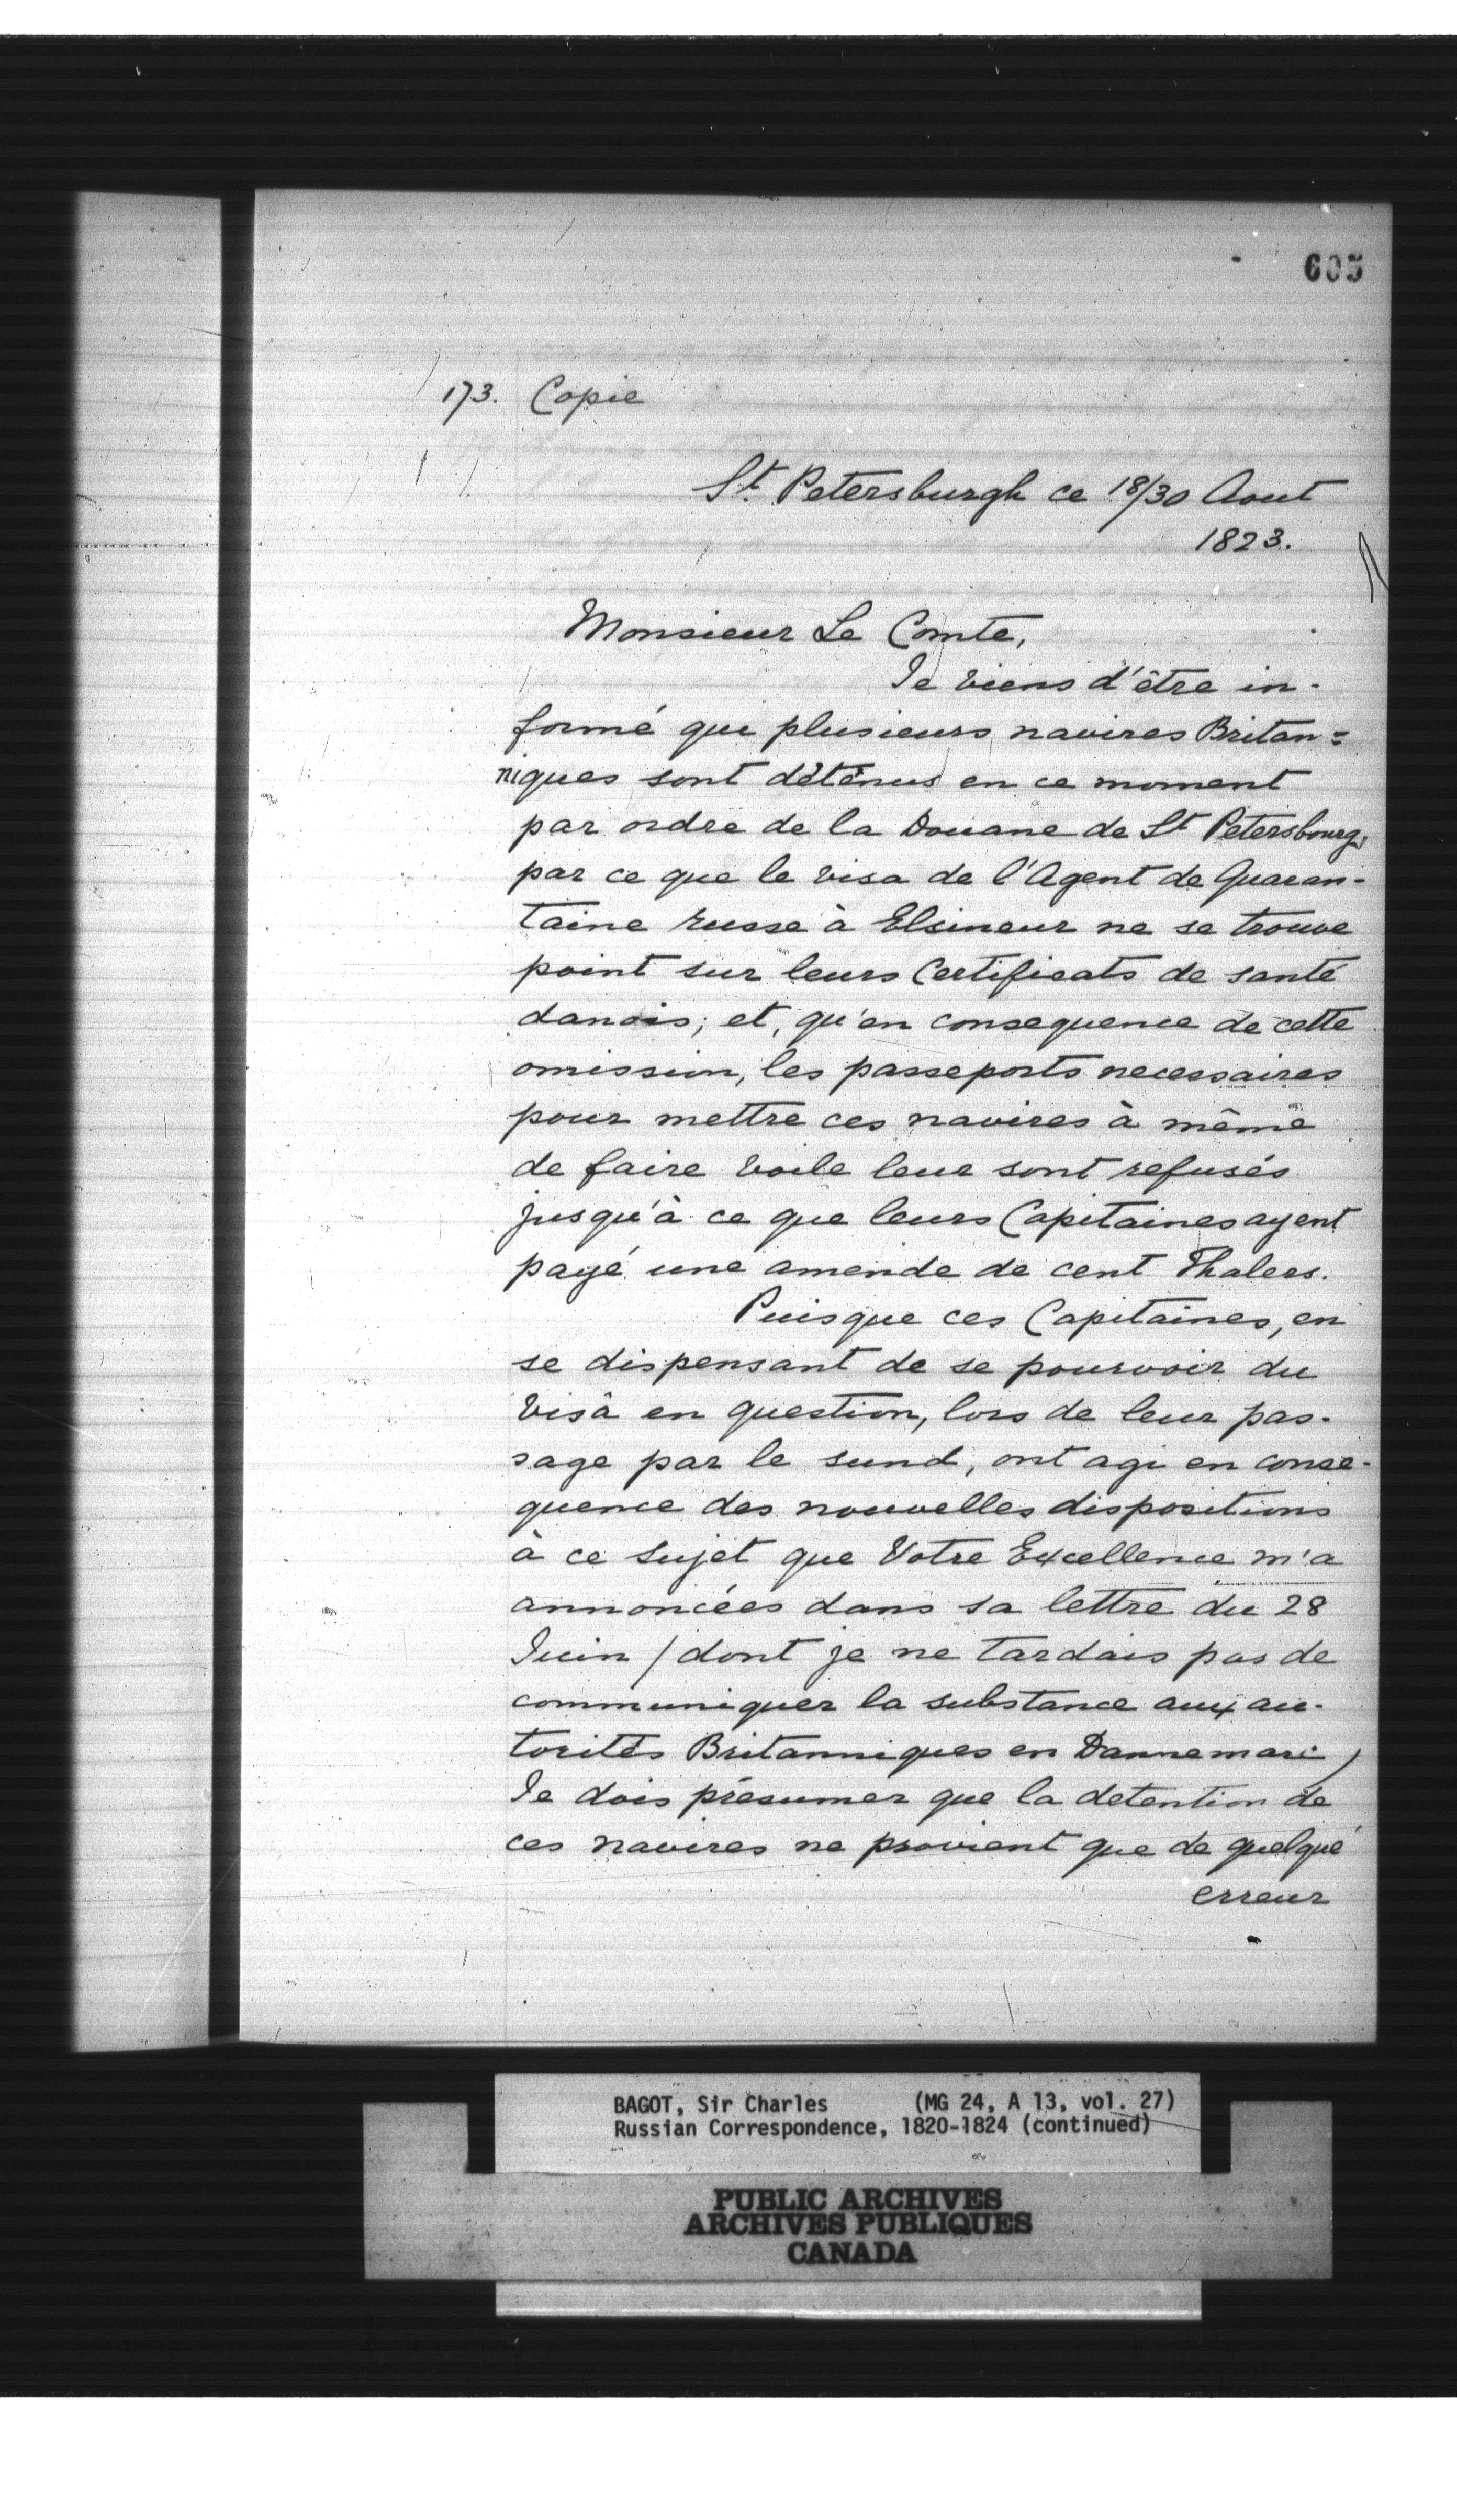 605
173. Copie
St. Petersburgh ce 18/30 Aout
1823.
Monsieur Le Comte,
Je viens d'être in-
formé que plusieurs navires Britan=
niques sont déténus en ce moment
par ordre de la Douane de St Petersbourg,
par ce que le visa de l'Agent de Quaran-
taine russe à Elsineur ne se trouve
point sur leurs Certificats de santé
danois; et, qu'en consequence de cette
omission, les passeports necessaires
pour mettre ces navires à même
de faire voile leur sont refusés
jusqu'à ce que leurs Capitaines ayent
payé une amende de cent Thalers.
Puisque ces Capitaines, en
se dispensant de se pourvoir du
visà en question, lors de leur pas-
sage par le sund, ont agi en conse-
quence des nouvelles dispositions
à ce sujet que Votre Excellence m'a
annoncées dans sa lettre du 28
Juin / dont je ne tardais pas de
communiquer la substance aux au-
torités Britanniques en Dannemarc /
Je dois présumer que la detention de
ces navires ne provient que de quelque
erreur
BAGOT, Sir Charles (MG 24, A 13, vol. 27)
Russian Correspondence, 1820-1824 (continued)
PUBLIC ARCHIVES
ARCHIVES PUBLIQUES
CANADA